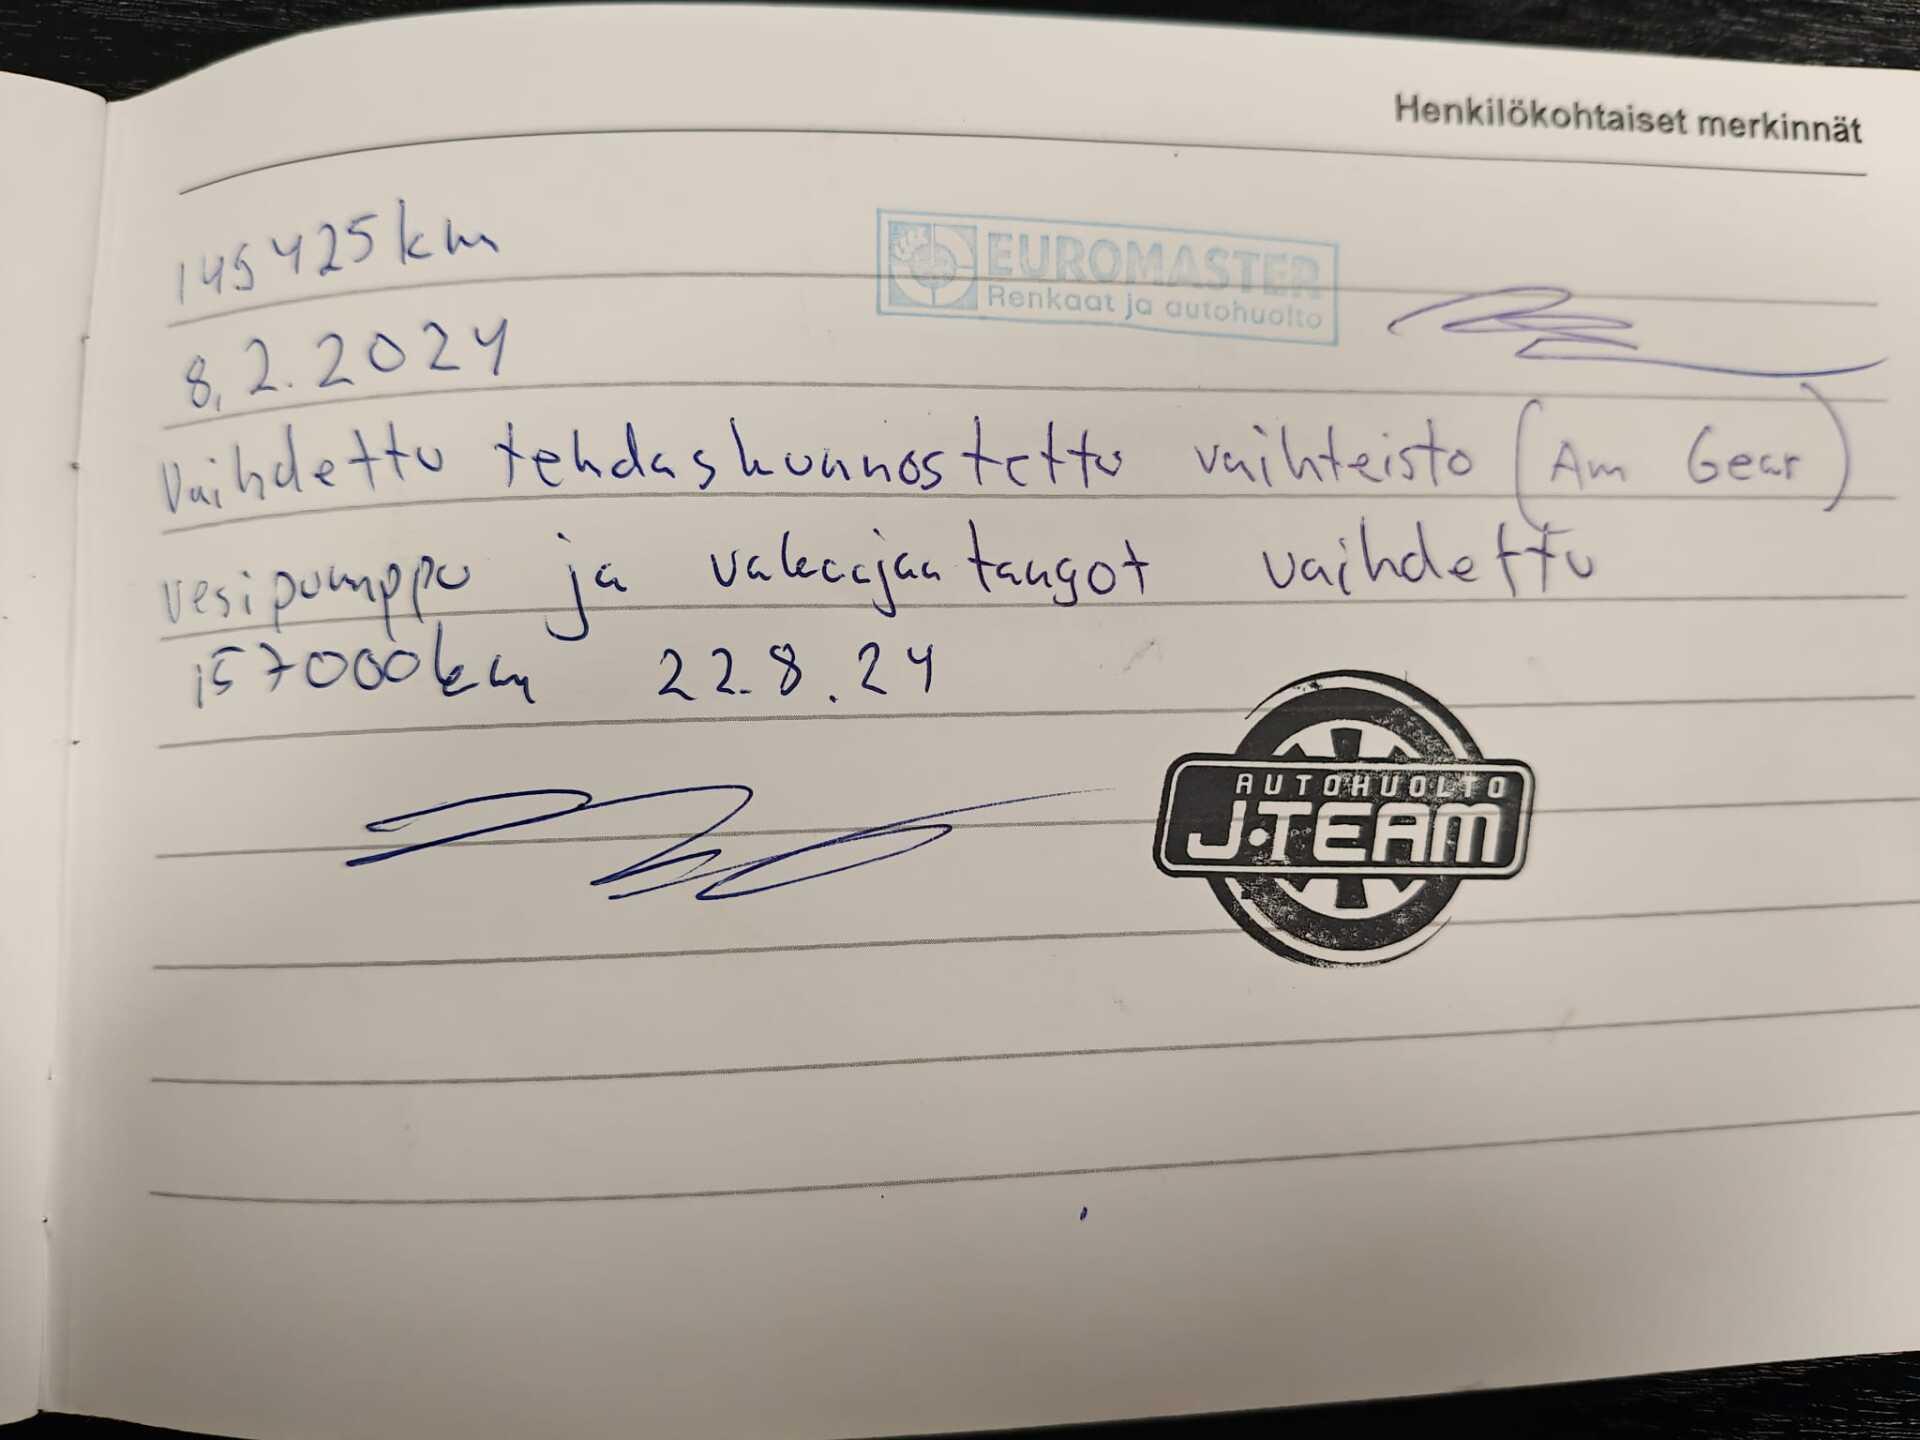 Henkilökohtaiset merkinnät
145425km
EUROMASTER
Renkaat ja autohuolto
8.2.2024
Vaihdettu tehdaskunnostettu vaihteisto (Am Gear)
vesipumppu ja vakaajaatangot vaihdettu
157000km 22.8.24
AUTOHUOLTO
J-TEAM